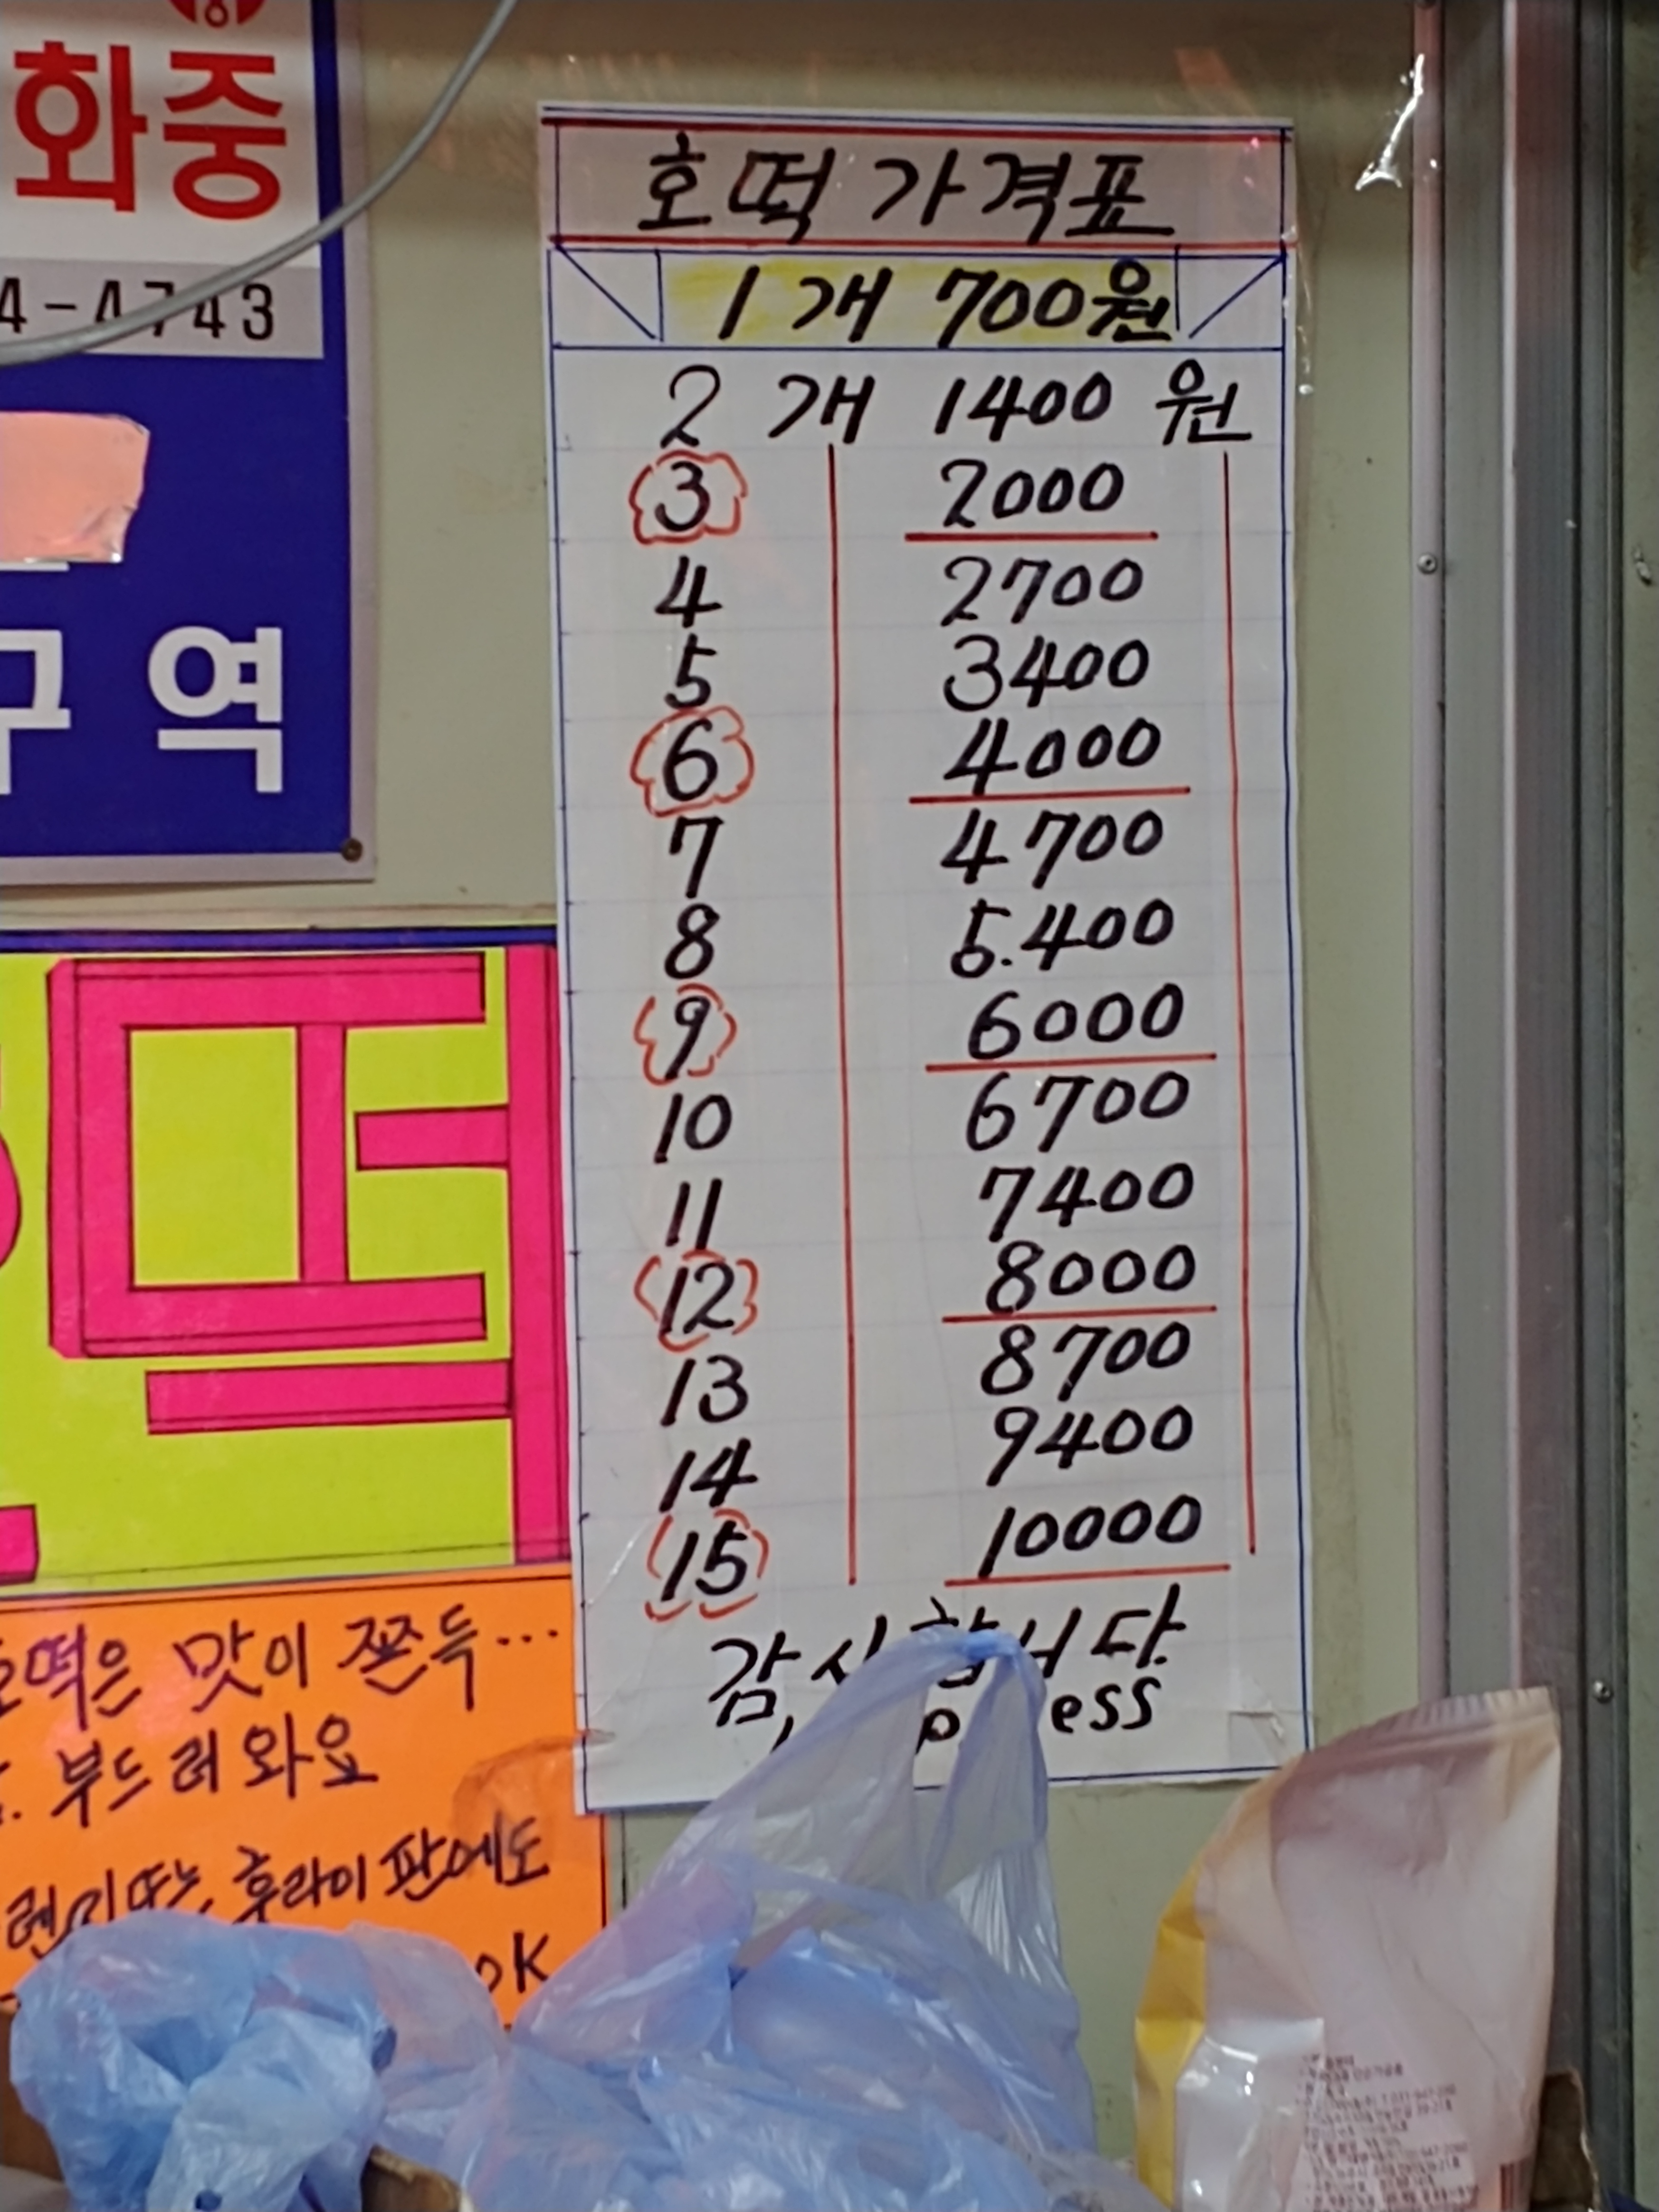 화중
4-4743
구역
떡
호떡 가격표
1개 700원
2 개 1400 원
3 2000
4 2700
5 3400
6 4000
7 4700
8 5.400
9 6000
10 6700
11 7400
12 8000
13 8700
14 9400
15 10000
감사합니다.
ess
호떡은 맛이 쫀득...
부드러와요
후라이판에도
OK